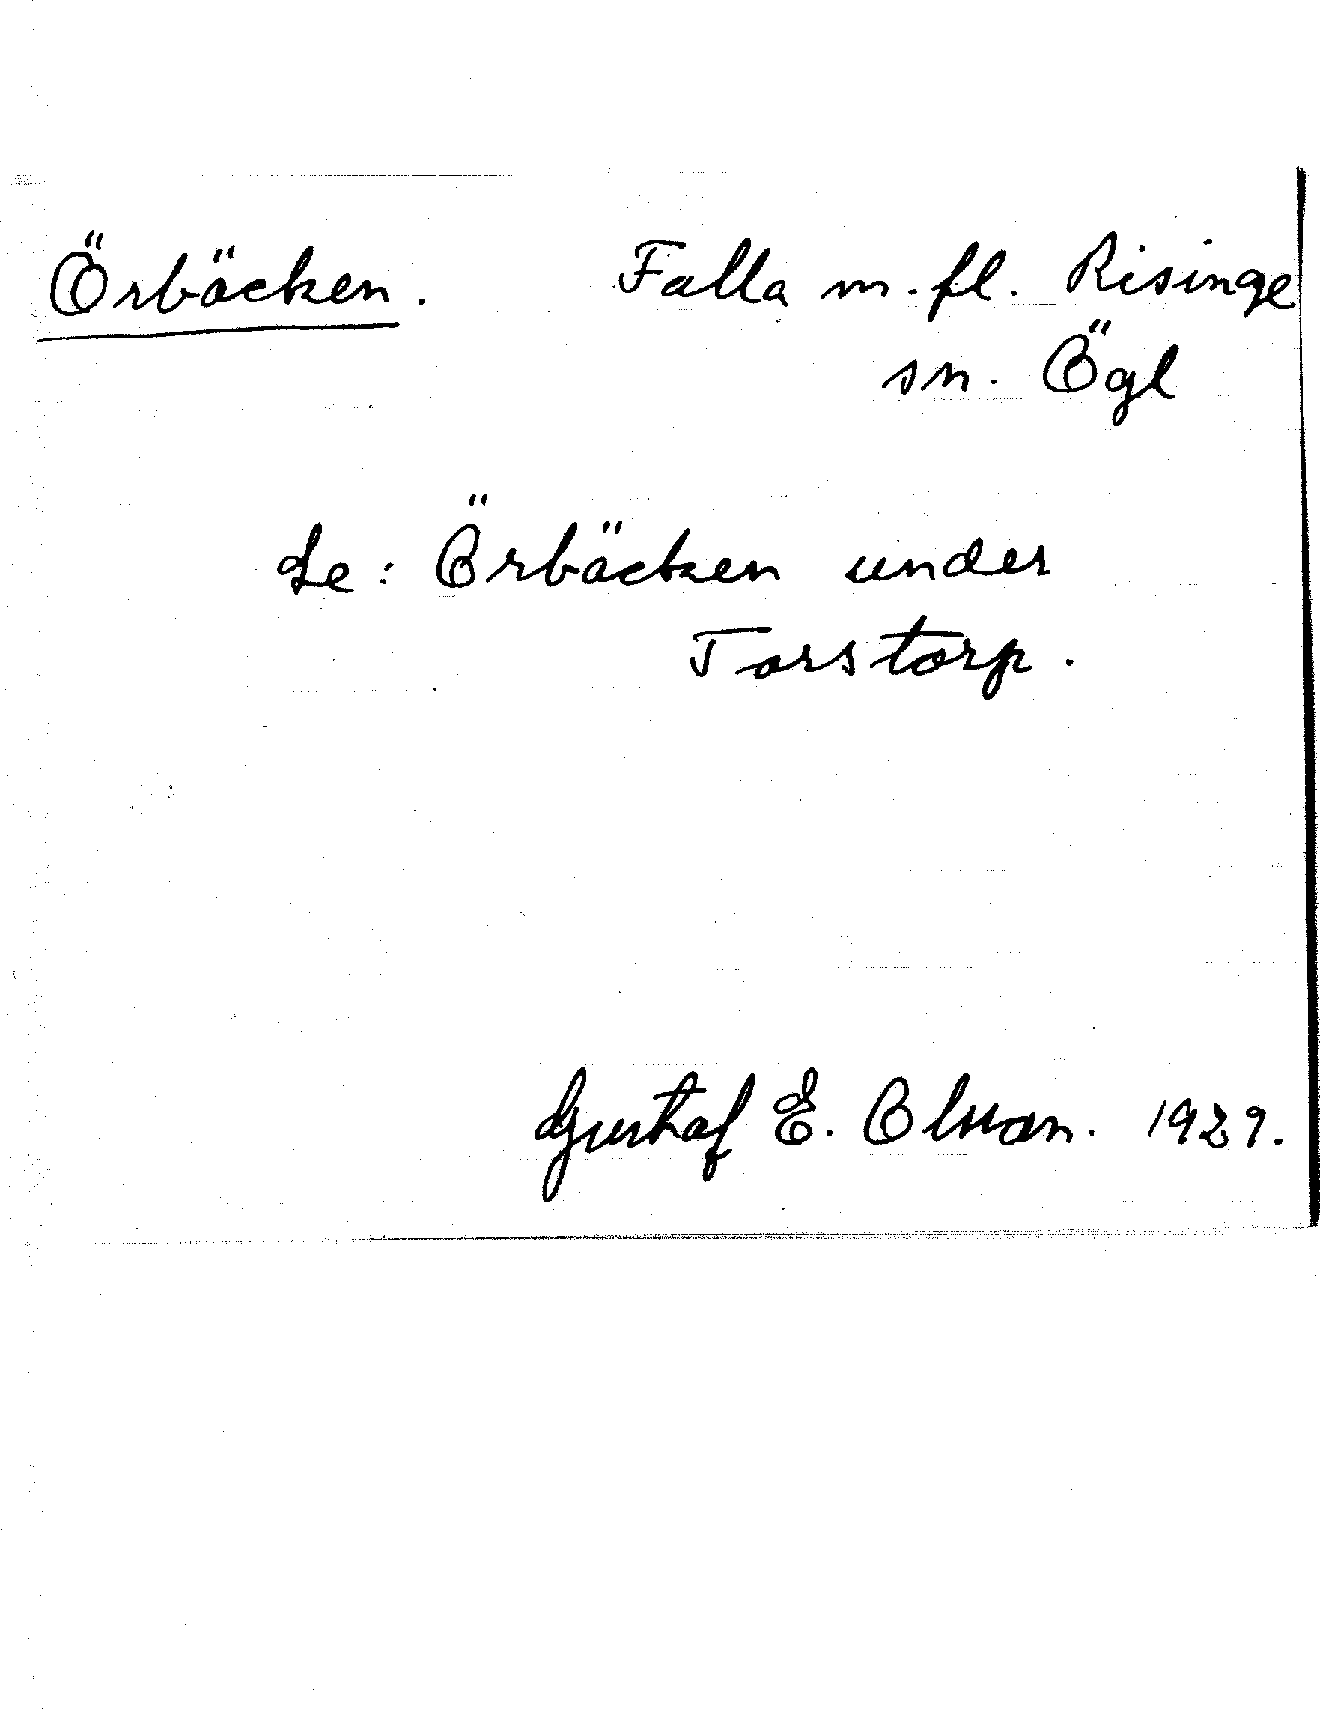 Örbäcken. Falla m.fl. Risinge
sn. Ögl
Se: Örbäcken under
Torstorp.
Gustaf E. Olsson. 1929.